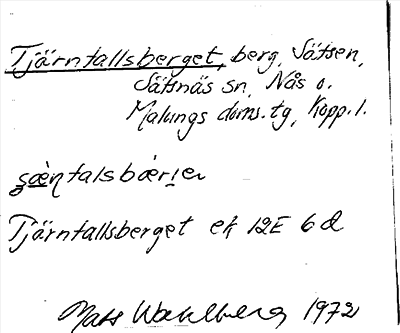 Tjärntallsberget, berg, Sätsen,
Sätsnäs sn, Nås o.
Malungs doms.tg, Kopp.l.
Tjärntallsberget ek 12E 6d
Mats Wahlberg 1972